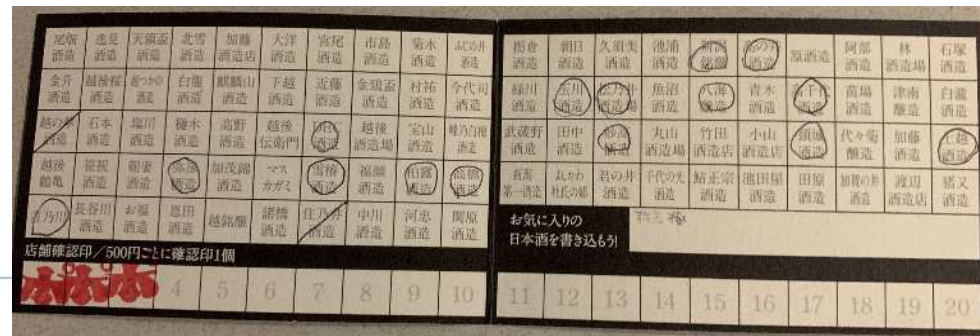 尾畑酒造 逸見酒造 天領盃酒造 北雪酒造 加藤酒造店 大洋酒造 宮尾酒造 市島酒造 菊水酒造 ふじの井酒造
金升酒造 越後桜酒造 越つかの酒造 白龍酒造 麒麟山酒造 下越酒造 近藤酒造 金鵄盃酒造 村祐酒造 今代司酒造
越の華酒造 石本酒造 塩川酒造 樋木酒造 高野酒造 越後伝衛門 DHC酒造 越後酒造場 宝山酒造 峰乃白梅酒造
越後鶴亀 笹祝酒造 朝妻酒造 弥彦酒造 加茂錦酒造 マスカガミ 雪椿酒造 福顔酒造 柏露酒造 高橋酒造
吉乃川 長谷川酒造 お福酒造 恩田酒造 越銘醸 諸橋酒造 住乃井酒造 中川酒造 河忠酒造 関原酒造
店舗確認印/500円ごとに確認印1個
ポポポ 4 5 6 7 8 9 10
摂倉酒造 朝日酒造 久須美酒造 池浦酒造 新潟銘醸 高の井酒造 原酒造 阿部酒造 林酒造場 石塚酒造
緑川酒造 玉川酒造 酒造場 魚沼酒造 八海醸造 青木酒造 高千代酒造 苗場酒造 津南醸造 白瀧酒造
武蔵野酒造 田中酒造 妙高酒造 丸山酒造場 竹田酒造店 小山酒造店 頚城酒造 代々菊醸造 加藤酒造 上越酒造
第一酒造 よしかわ杜氏の郷 君の井酒造 千代の光酒造 鮎正宗酒造 池田屋酒造 田原酒造 加賀の井酒造 渡辺酒造店 猪又酒造
お気に入りの
日本酒を書き込もう!
11 12 13 14 15 16 17 18 19 20